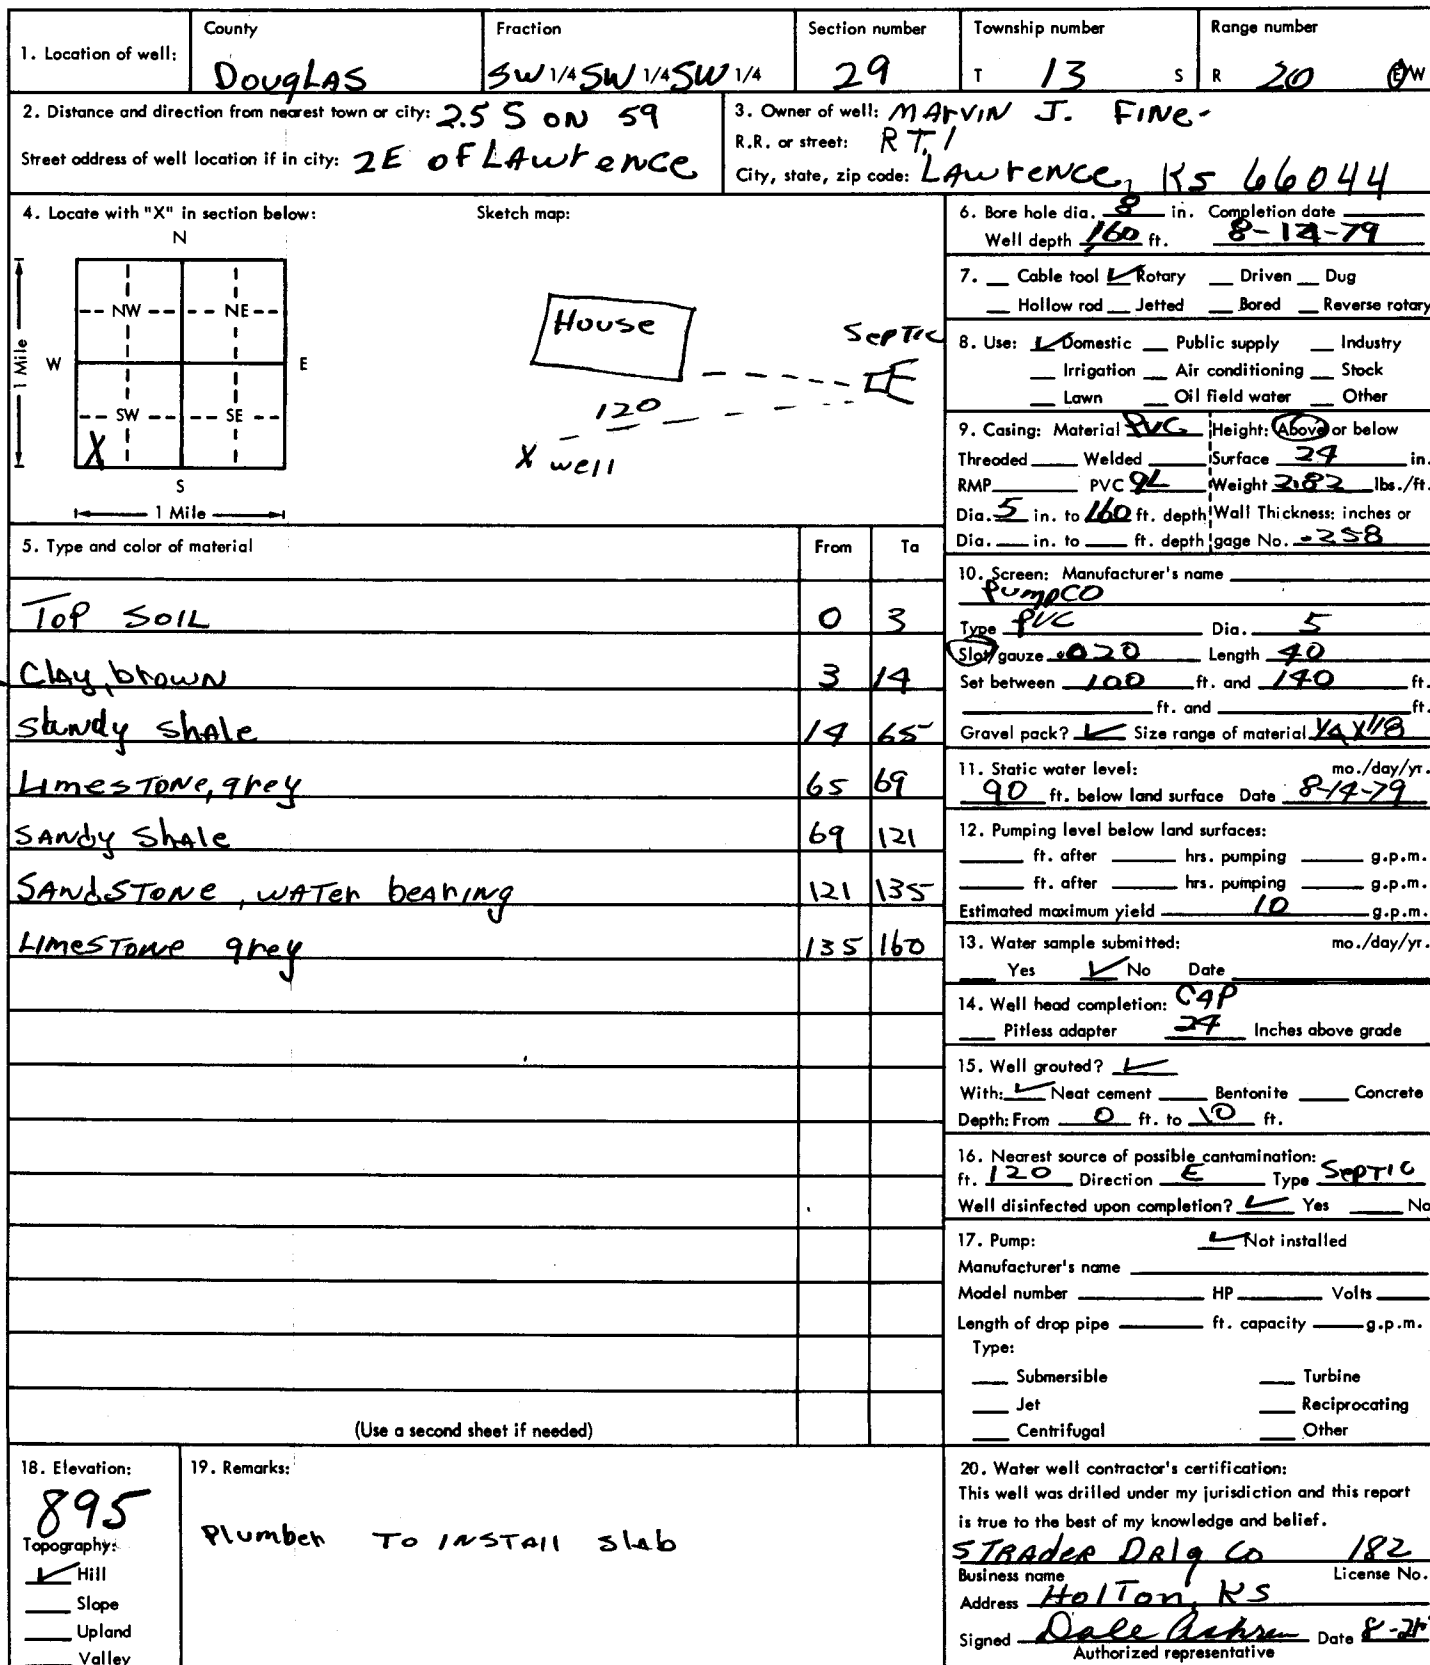 1. Location of well: County DouglAS Fraction SW 1/4 SW 1/4 SW 1/4 Section number 29 Township number T 13 S Range number R 20 E/W
2. Distance and direction from nearest town or city: 2.5 S ON 59
Street address of well location if in city: 2E OF LAwrence
3. Owner of well: MArvIN J. FINe
R.R. or street: RT. 1
City, state, zip code: LAwrence, KS 66044
4. Locate with "X" in section below:
N
NW NE
W E
SW SE
X
S
1 Mile
1 Mile
Sketch map:
House
Septic
120
X well
5. Type and color of material From To
Top SOIL 0 3
Clay, brown 3 14
Sandy ShAle 14 65
LimesTONe, grey 65 69
SANdy ShAle 69 121
SANdSTONe, wATer beArINg 121 135
LimesTONe grey 135 160
(Use a second sheet if needed)
6. Bore hole dia. 8 in. Completion date
Well depth 160 ft. 8-14-79
7. Cable tool ✓ Rotary Driven Dug
Hollow rod Jetted Bored Reverse rotary
8. Use: ✓ Domestic Public supply Industry
Irrigation Air conditioning Stock
Lawn Oil field water Other
9. Casing: Material PVC Height: Above or below
Threaded Welded Surface 24 in.
RMP PVC GL Weight 2.82 lbs./ft.
Dia. 5 in. to 160 ft. depth Wall Thickness: inches or
Dia. in. to ft. depth gage No. .258
10. Screen: Manufacturer's name
PumpCO
Type PVC Dia. 5
Slot/gauze .020 Length 40
Set between 100 ft. and 140 ft.
ft. and ft.
Gravel pack? ✓ Size range of material 1/4 X 1/8
11. Static water level: mo./day/yr.
90 ft. below land surface Date 8-14-79
12. Pumping level below land surfaces:
ft. after hrs. pumping g.p.m.
ft. after hrs. pumping g.p.m.
Estimated maximum yield 10 g.p.m.
13. Water sample submitted: mo./day/yr.
Yes ✓ No Date
14. Well head completion: CAP
Pitless adapter 24 Inches above grade
15. Well grouted? ✓
With: ✓ Neat cement Bentonite Concrete
Depth: From 0 ft. to 10 ft.
16. Nearest source of possible contamination:
ft. 120 Direction E Type SepTIC
Well disinfected upon completion? ✓ Yes No
17. Pump: ✓ Not installed
Manufacturer's name
Model number HP Volts
Length of drop pipe ft. capacity g.p.m.
Type:
Submersible Turbine
Jet Reciprocating
Centrifugal Other
18. Elevation:
895
Topography:
✓ Hill
Slope
Upland
Valley
19. Remarks:
Plumber TO INSTAll slab
20. Water well contractor's certification:
This well was drilled under my jurisdiction and this report
is true to the best of my knowledge and belief.
STRAder DRlg Co 182
Business name License No.
Address HolTon, KS
Signed Dale Date
Authorized representative